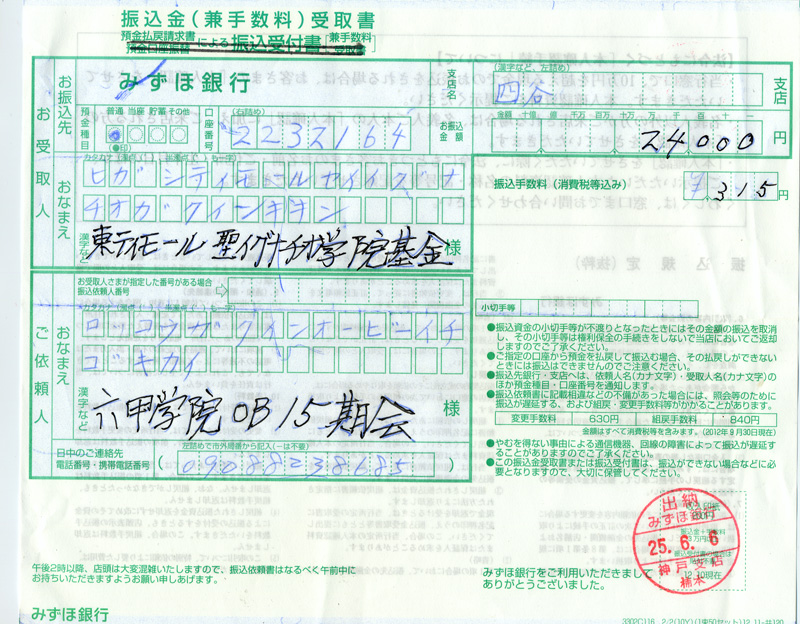 振込金(兼手数料)受取書
預金払戻請求書
預金口座振替
による振込受付書
兼手数料
受取書
お振込先
みずほ銀行
支店名
(漢字など、左詰め)
四谷
支店
預金種目
普通 当座 貯蓄 その他
(●印)
口座番号
(右詰め)
2232164
お振込金額
金額 十億 億 千万 百万 十万 万 千 百 十 一
24000
円
お受取人
おなまえ
ヒガシティモールセイイグナ
チオガクインキキン
漢字など
東ティモール 聖イグナチオ学院基金
様
振込手数料(消費税等込み)
¥315
円
お受取人さまが指定した番号がある場合
振込依頼人番号
ご依頼人
おなまえ
ロッコウガクインオービーイチ
ゴキカイ
漢字など
六甲学院OB15期会
様
日中のご連絡先
電話番号・携帯電話番号
左詰めで市外局番から記入(ーは不要)
09088238685
小切手等
●振込資金の小切手等が不渡りとなったときにはその金額の振込を取消
し、その小切手等は権利保全の手続きをしないで当店においてご返却
しますのでご了承ください。
●ご指定の口座から預金を払戻して振込む場合、その払戻しができない
ときには振込はできませんのでご注意ください。
●振込先銀行・支店へは、依頼人名(カナ文字)・受取人名(カナ文字)の
ほか預金種目・口座番号を通知します。
●振込依頼書に記載相違などの不備があった場合には、照会等のために
振込が遅延する、および組戻・変更手数料等がかかることがあります。
変更手数料 630円 組戻手数料 840円
金額はすべて消費税等を含みます。(2012年9月30日現在)
●やむを得ない事由による通信機器、回線の障害によって振込が遅延する
ことがありますのでご了承ください。
●この振込金受取書または振込受付書は、振込ができない場合などに必
要となりますので、大切に保管してください。
出納
みずほ銀行
25.6.6
神戸支店
楠木
午後2時以降、店頭は大変混雑いたしますので、振込依頼書はなるべく午前中に
お持ちいただきますようお願い申しあげます。
みずほ銀行をご利用いただきまして
ありがとうございました。
みずほ銀行
3302C116 2/2(10Y)(1束50セット)12.11-共120